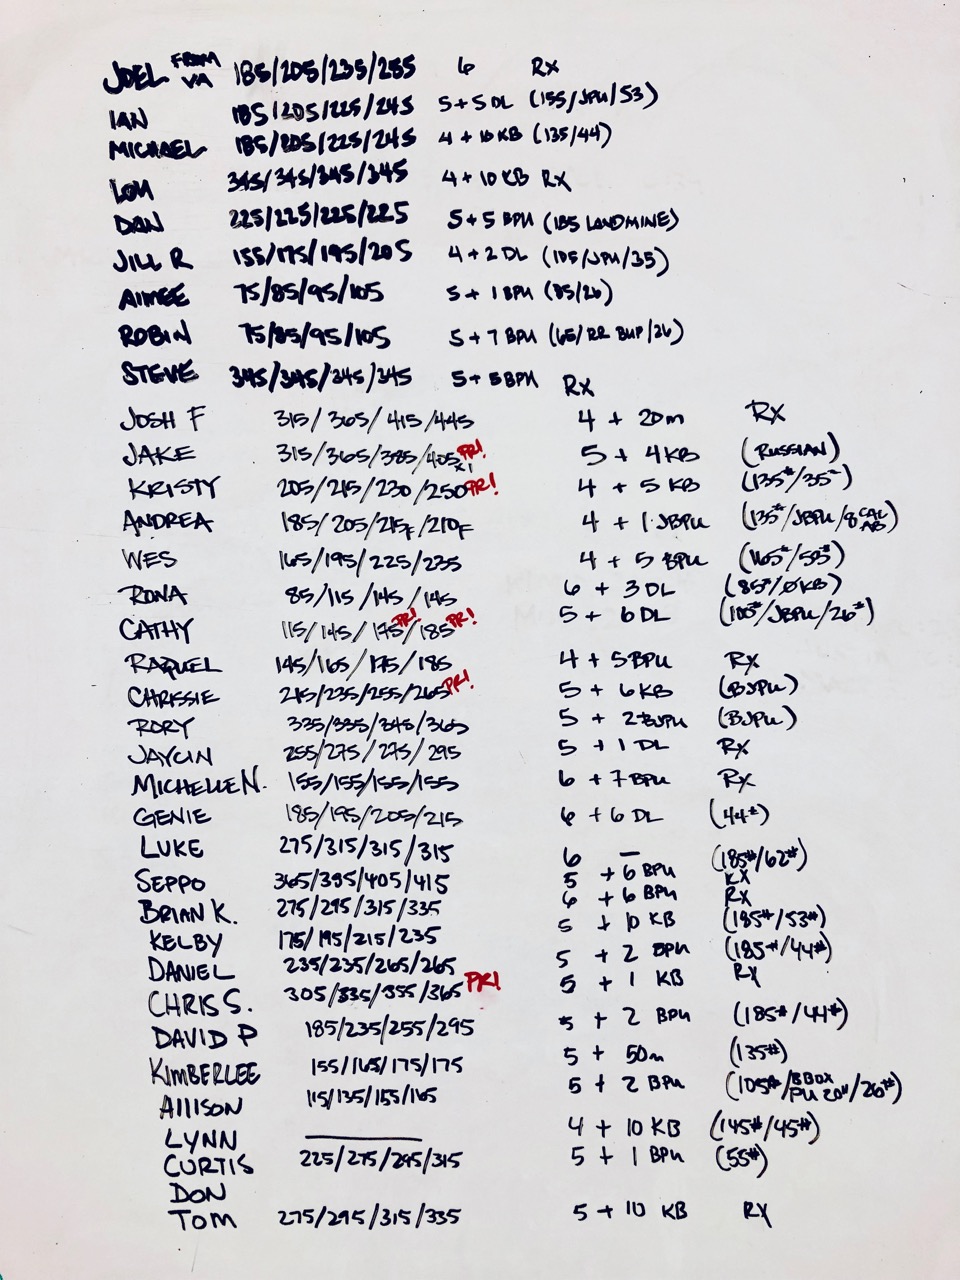 JOEL FROM VA 185/205/235/255 6 RX
IAN 185/205/225/245 5+5 DL (155/JPU/53)
MICHAEL 185/205/225/245 4+10 KB (135/44)
LOU 345/345/345/345 4+10 KB RX
DAN 225/225/225/225 5+5 BPU (185 LANDMINE)
JILL R 155/175/195/205 4+2 DL (105/JPU/35)
AIMEE 75/85/95/105 5+1 BPU (85/26)
ROBIN 75/85/95/105 5+7 BPU (65/RR BUP/26)
STEVE 345/345/345/345 5+5 BPU RX
JOSH F 315/365/415/445 4 + 20m RX
JAKE 315/365/385/405 x1 PR! 5 + 4 KB (RUSSIAN)
KRISTY 205/215/230/250 PR! 4 + 5 KB (135#/35#)
ANDREA 185/205/215F/210F 4 + 1 JBPU (135#/JBPU/8 CAL AB)
WES 165/195/225/235 4 + 5 BPU (165#/53#)
RONA 85/115/145/145 6 + 3 DL (85#/0KB)
CATHY 115/145/175 PR!/185 PR! 5 + 6 DL (105#/JBPU/26#)
RAQUEL 145/165/175/185 4 + 5 BPU RX
CHRISSIE 215/235/255/265 PR! 5 + 6 KB (BJPU)
RORY 335/335/345/365 5 + 2 BJPU (BJPU)
JAYLIN 255/275/275/295 5 + 1 DL RX
MICHELLE N. 155/155/155/155 6 + 7 BPU RX
GENIE 185/195/205/215 6 + 6 DL (44#)
LUKE 275/315/315/315 6 – (185#/62#)
SEPPO 365/395/405/415 5 + 6 BPU RX
BRIAN K. 275/295/315/335 6 + 6 BPU RX
KELBY 175/195/215/235 5 + 10 KB (185#/53#)
DANIEL 235/235/265/265 5 + 2 BPU (185#/44#)
CHRIS S. 305/335/355/365 PR! 5 + 1 KB RX
DAVID P 185/235/255/295 5 + 2 BPU (185#/44#)
KIMBERLEE 155/165/175/175 5 + 50m (135#)
ALLISON 115/135/155/165 5 + 2 BPU (105#/BBOX PU 20"/26#)
LYNN — 4 + 10 KB (145#/45#)
CURTIS 225/275/295/315 5 + 1 BPU (55#)
DON
TOM 275/295/315/335 5 + 10 KB RX